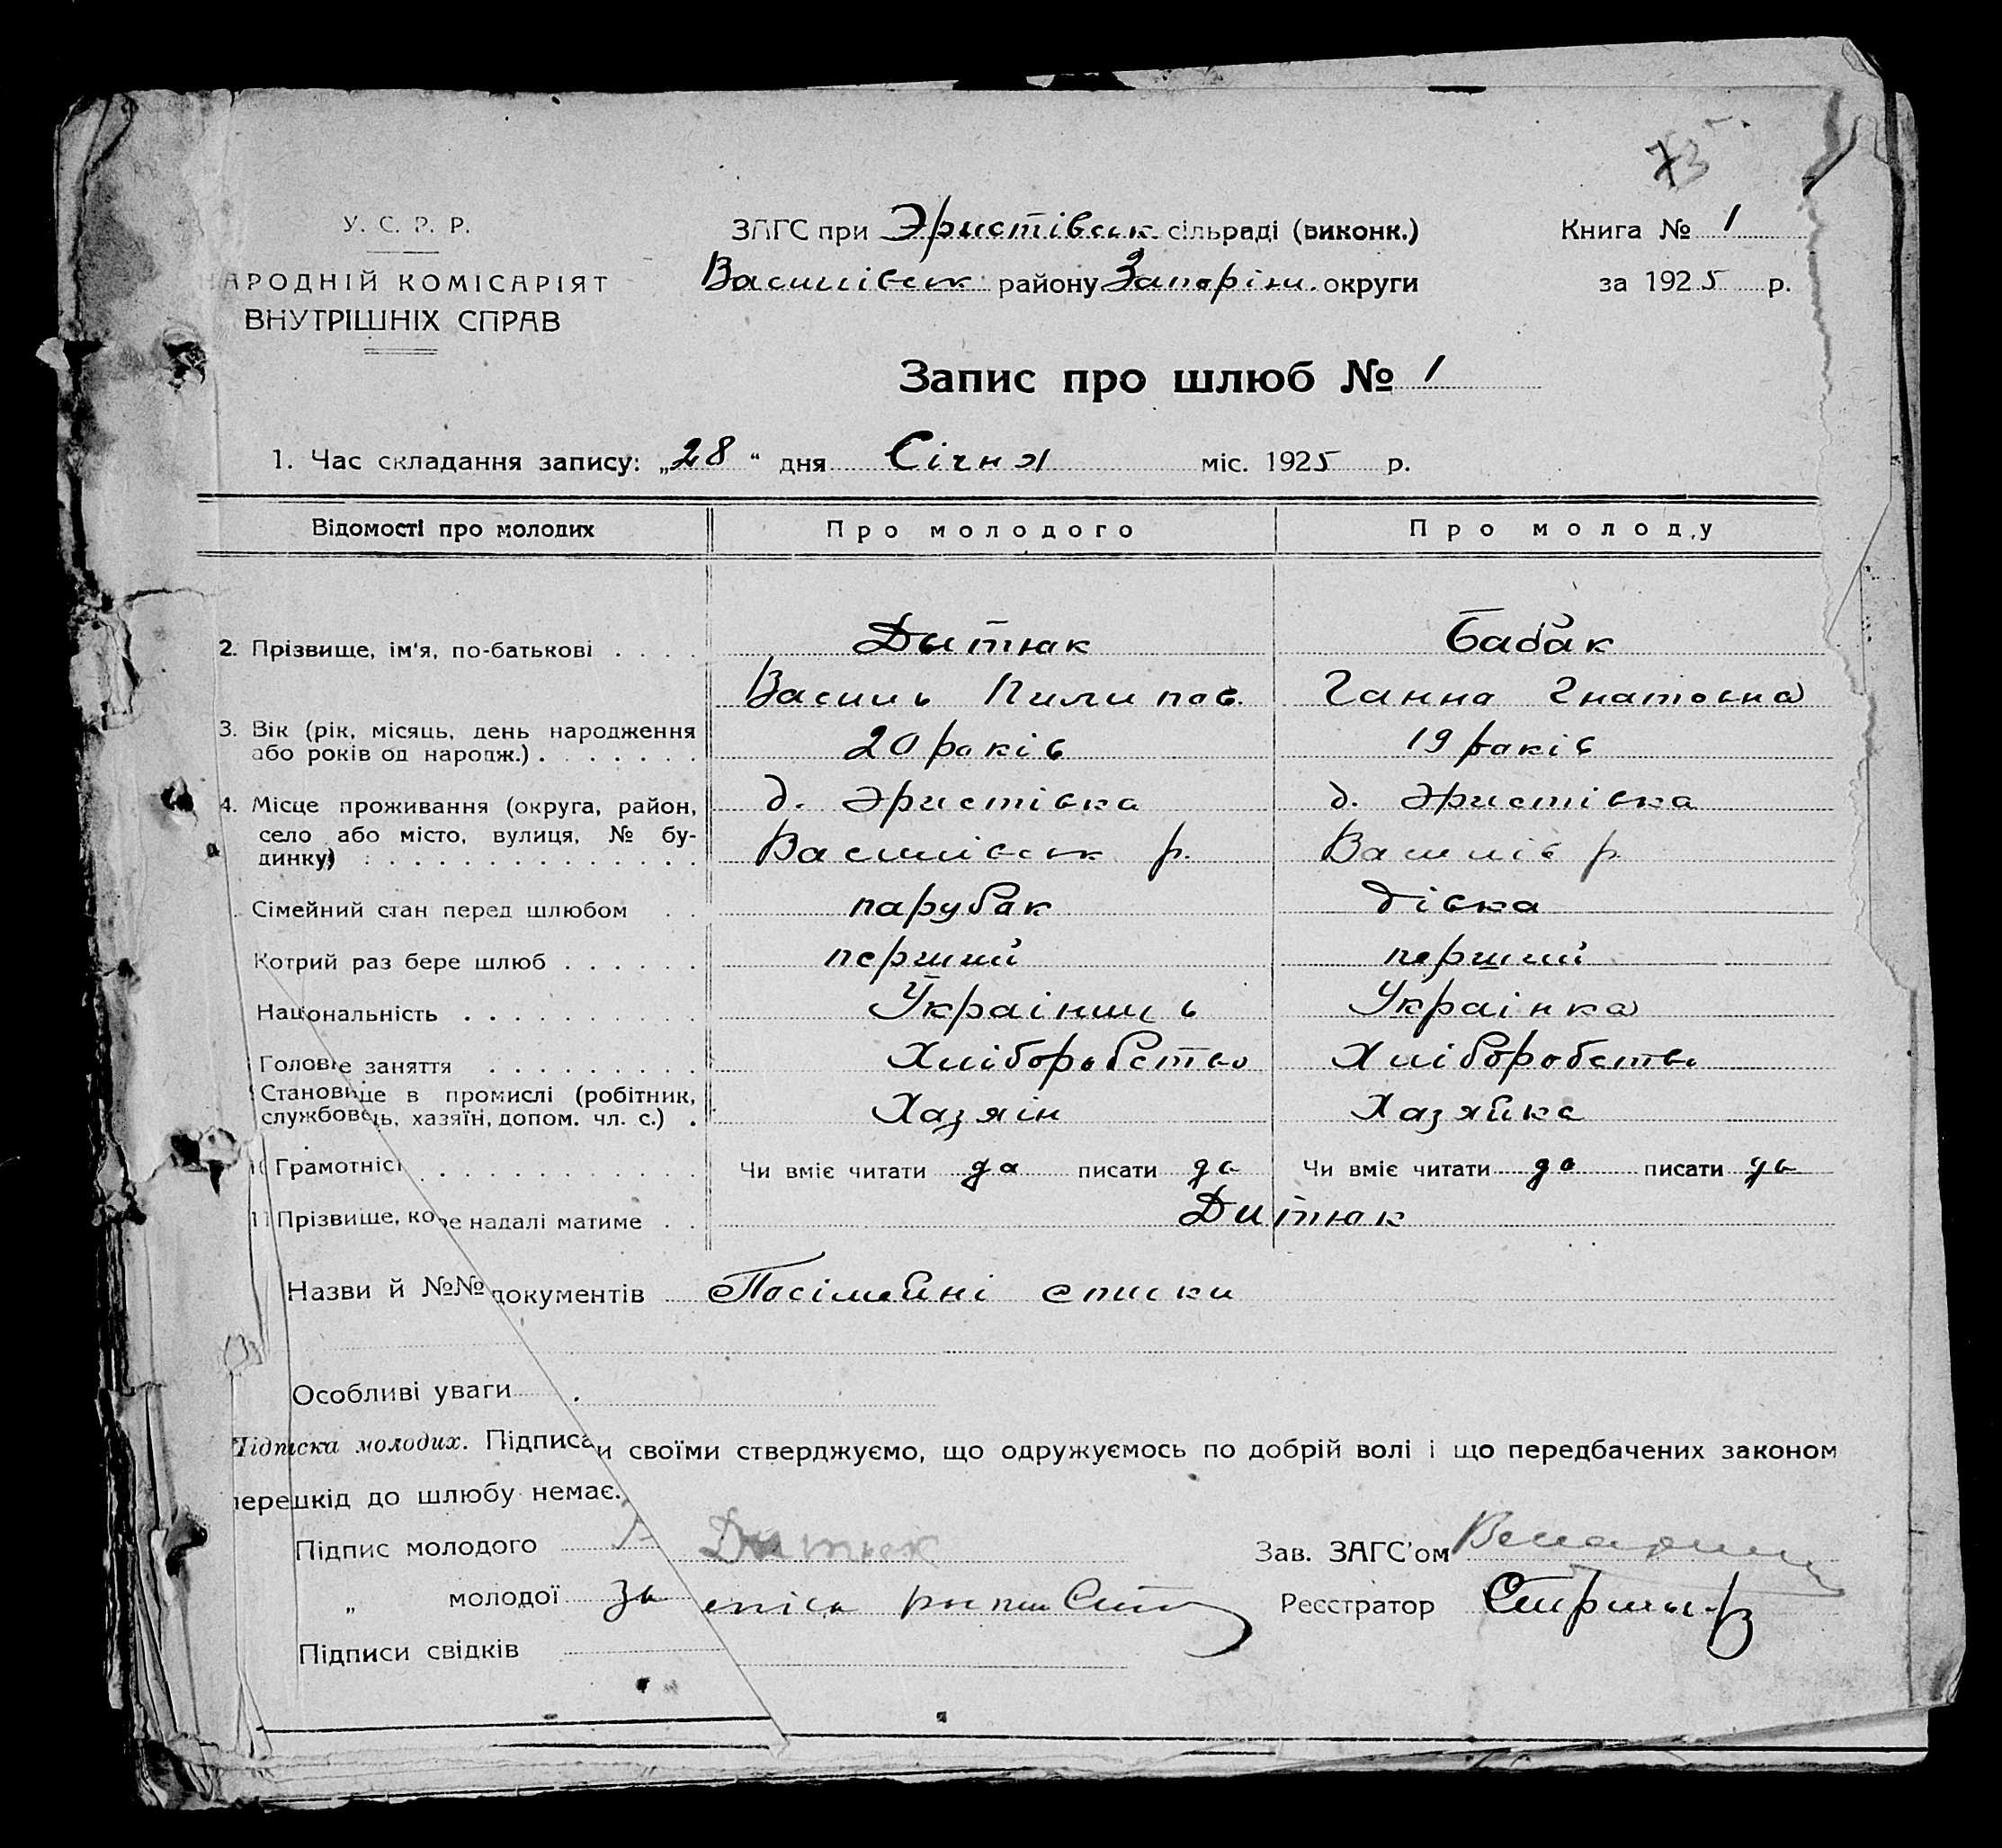 73
У. С. Р. Р.
НАРОДНІЙ КОМІСАРІЯТ
ВНУТРІШНІХ СПРАВ
ЗАГС при Эристівськ сільраді (виконк.)
Василівськ району Запоріж. округи
Книга № 1
за 1925 р.
Запис про шлюб № 1
1. Час складання запису: „28“ дня Січня міс. 1925 р.
Відомості про молодих Про молодого Про молоду
2. Прізвище, ім'я, по-батькові . . . . Дытюк Бабак
Василь Пилипов. Ганна Гнатовна
3. Вік (рік, місяць, день народження
або років од народж.) . . . . . . . 20 років 19 років
4. Місце проживання (округа, район, д. Эристівка д. Эристівка
село або місто, вулиця, № бу-
динку) : . . . . . . . . . . . . . Василівськ р. Василів р
Сімейний стан перед шлюбом . . парубак дівка
Котрий раз бере шлюб . . . . . . перший перший
Національність . . . . . . . . . . Українець Українка
Головне заняття . . . . . . . . . Хліборобство Хліборобство
Становище в промислі (робітник,
службовець, хазяїн, допом. чл. с.) . Хазяін Хазяйка
10 Грамотніс . . . . . . . . . . . Чи вміє читати да писати да Чи вміє читати да писати да
11 Прізвище, ко ре надалі матиме . . Дитюк
Назви й №№ документів Посімейні списки
Особливі уваги
Підписка молодих. Підписа и своїми стверджуємо, що одружуємось по добрій волі і що передбачених законом
перешкід до шлюбу немає.
Підпис молодого Дитюк
Зав. ЗАГС'ом
„ молодої за
Реєстратор
Підписи свідків